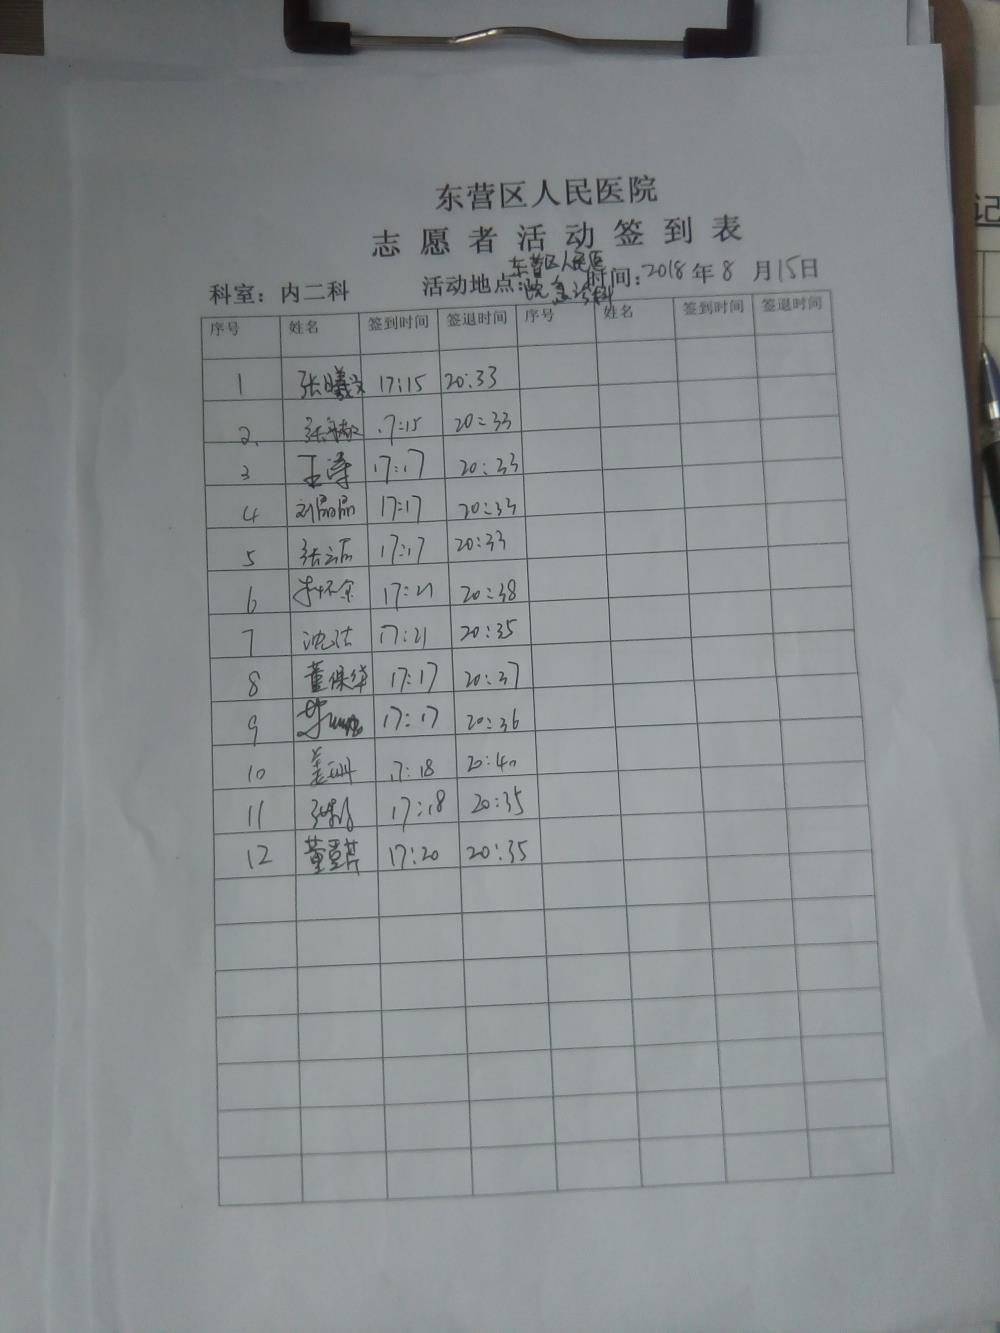 东营区人民医院
志愿者活动签到表
科室：内二科 活动地点：东营区人民医院急诊科 时间：2018年8月15日
序号 姓名 签到时间 签退时间 序号 姓名 签到时间 签退时间
1 张曦文 17:15 20:33
2 17:15 20:33
3 王涛 17:17 20:33
4 刘晶晶 17:17 20:33
5 17:17 20:33
6 17:21 20:38
7 17:21 20:35
8 董保华 17:17 20:37
9 17:17 20:36
10 姜珊 17:18 20:40
11 17:18 20:35
12 17:20 20:35
记